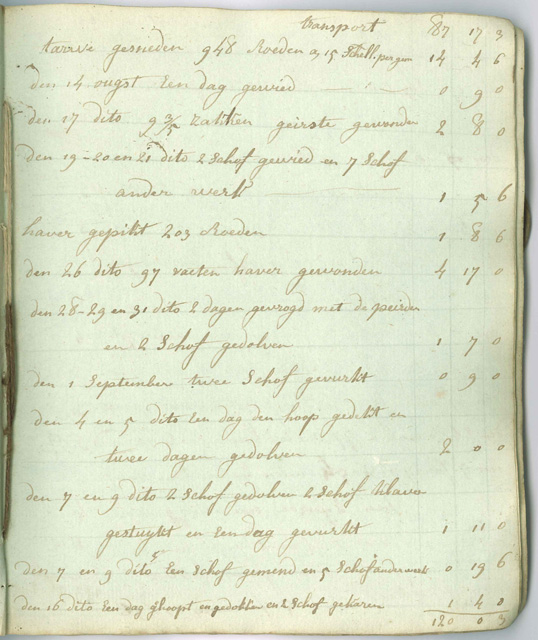 transport 87 17 3
tarwe gesneden 948 Roeden a 15 Schell. pergem 14 4 6
den 14 ougst Een dag gewied 0 9 0
den 17 dito 9 3/5 zakken geirste gewonden 2 8 0
den 19-20 en 21 dito 2 Schof gewied en 7 Schof
ander werk 1 5 6
haver gepikt 203 Roeden 1 8 6
den 26 dito 97 vaeten haver gewonden 4 17 0
den 28-29 en 31 dito 2 dagen gevrogd met de peirden
en 2 Schof gedolven 1 7 0
den 1 September twee Schof gevurkt 0 9 0
den 4 en 5 dito Een dag den hoop gedekt en
twee dagen gedolven 2 0 0
den 7 en 9 dito 2 Schof gedolven 2 Schof klaver
gestuykt en Een dag gevurkt 1 11 0
den 7 en 9 dito Een Schof gemend en 5 Schof ander werk 0 19 6
den 16 dito Een dag en 2 Schof 1 4 0
120 0 3